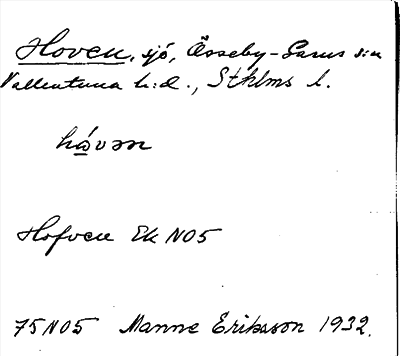 Hoven, sjö, Össeby-Garns s:n
Vallentuna h:d., Sthlms l.
håvən
Hofven Ek NO5
75NO5 Manne Eriksson 1932.